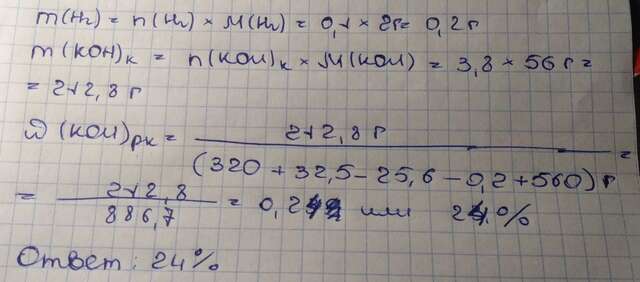 m(H₂) = n(H₂) × M(H₂) = 0,1 × 2г = 0,2 г
m(KOH)к = n(KOH)к × M(KOH) = 3,8 × 56 г =
= 212,8 г
ω(KOH)рк = 212,8 г / (320 + 32,5 − 25,6 − 0,2 + 560) г =
= 212,8 / 886,7 = 0,24 или 24%
Ответ: 24%